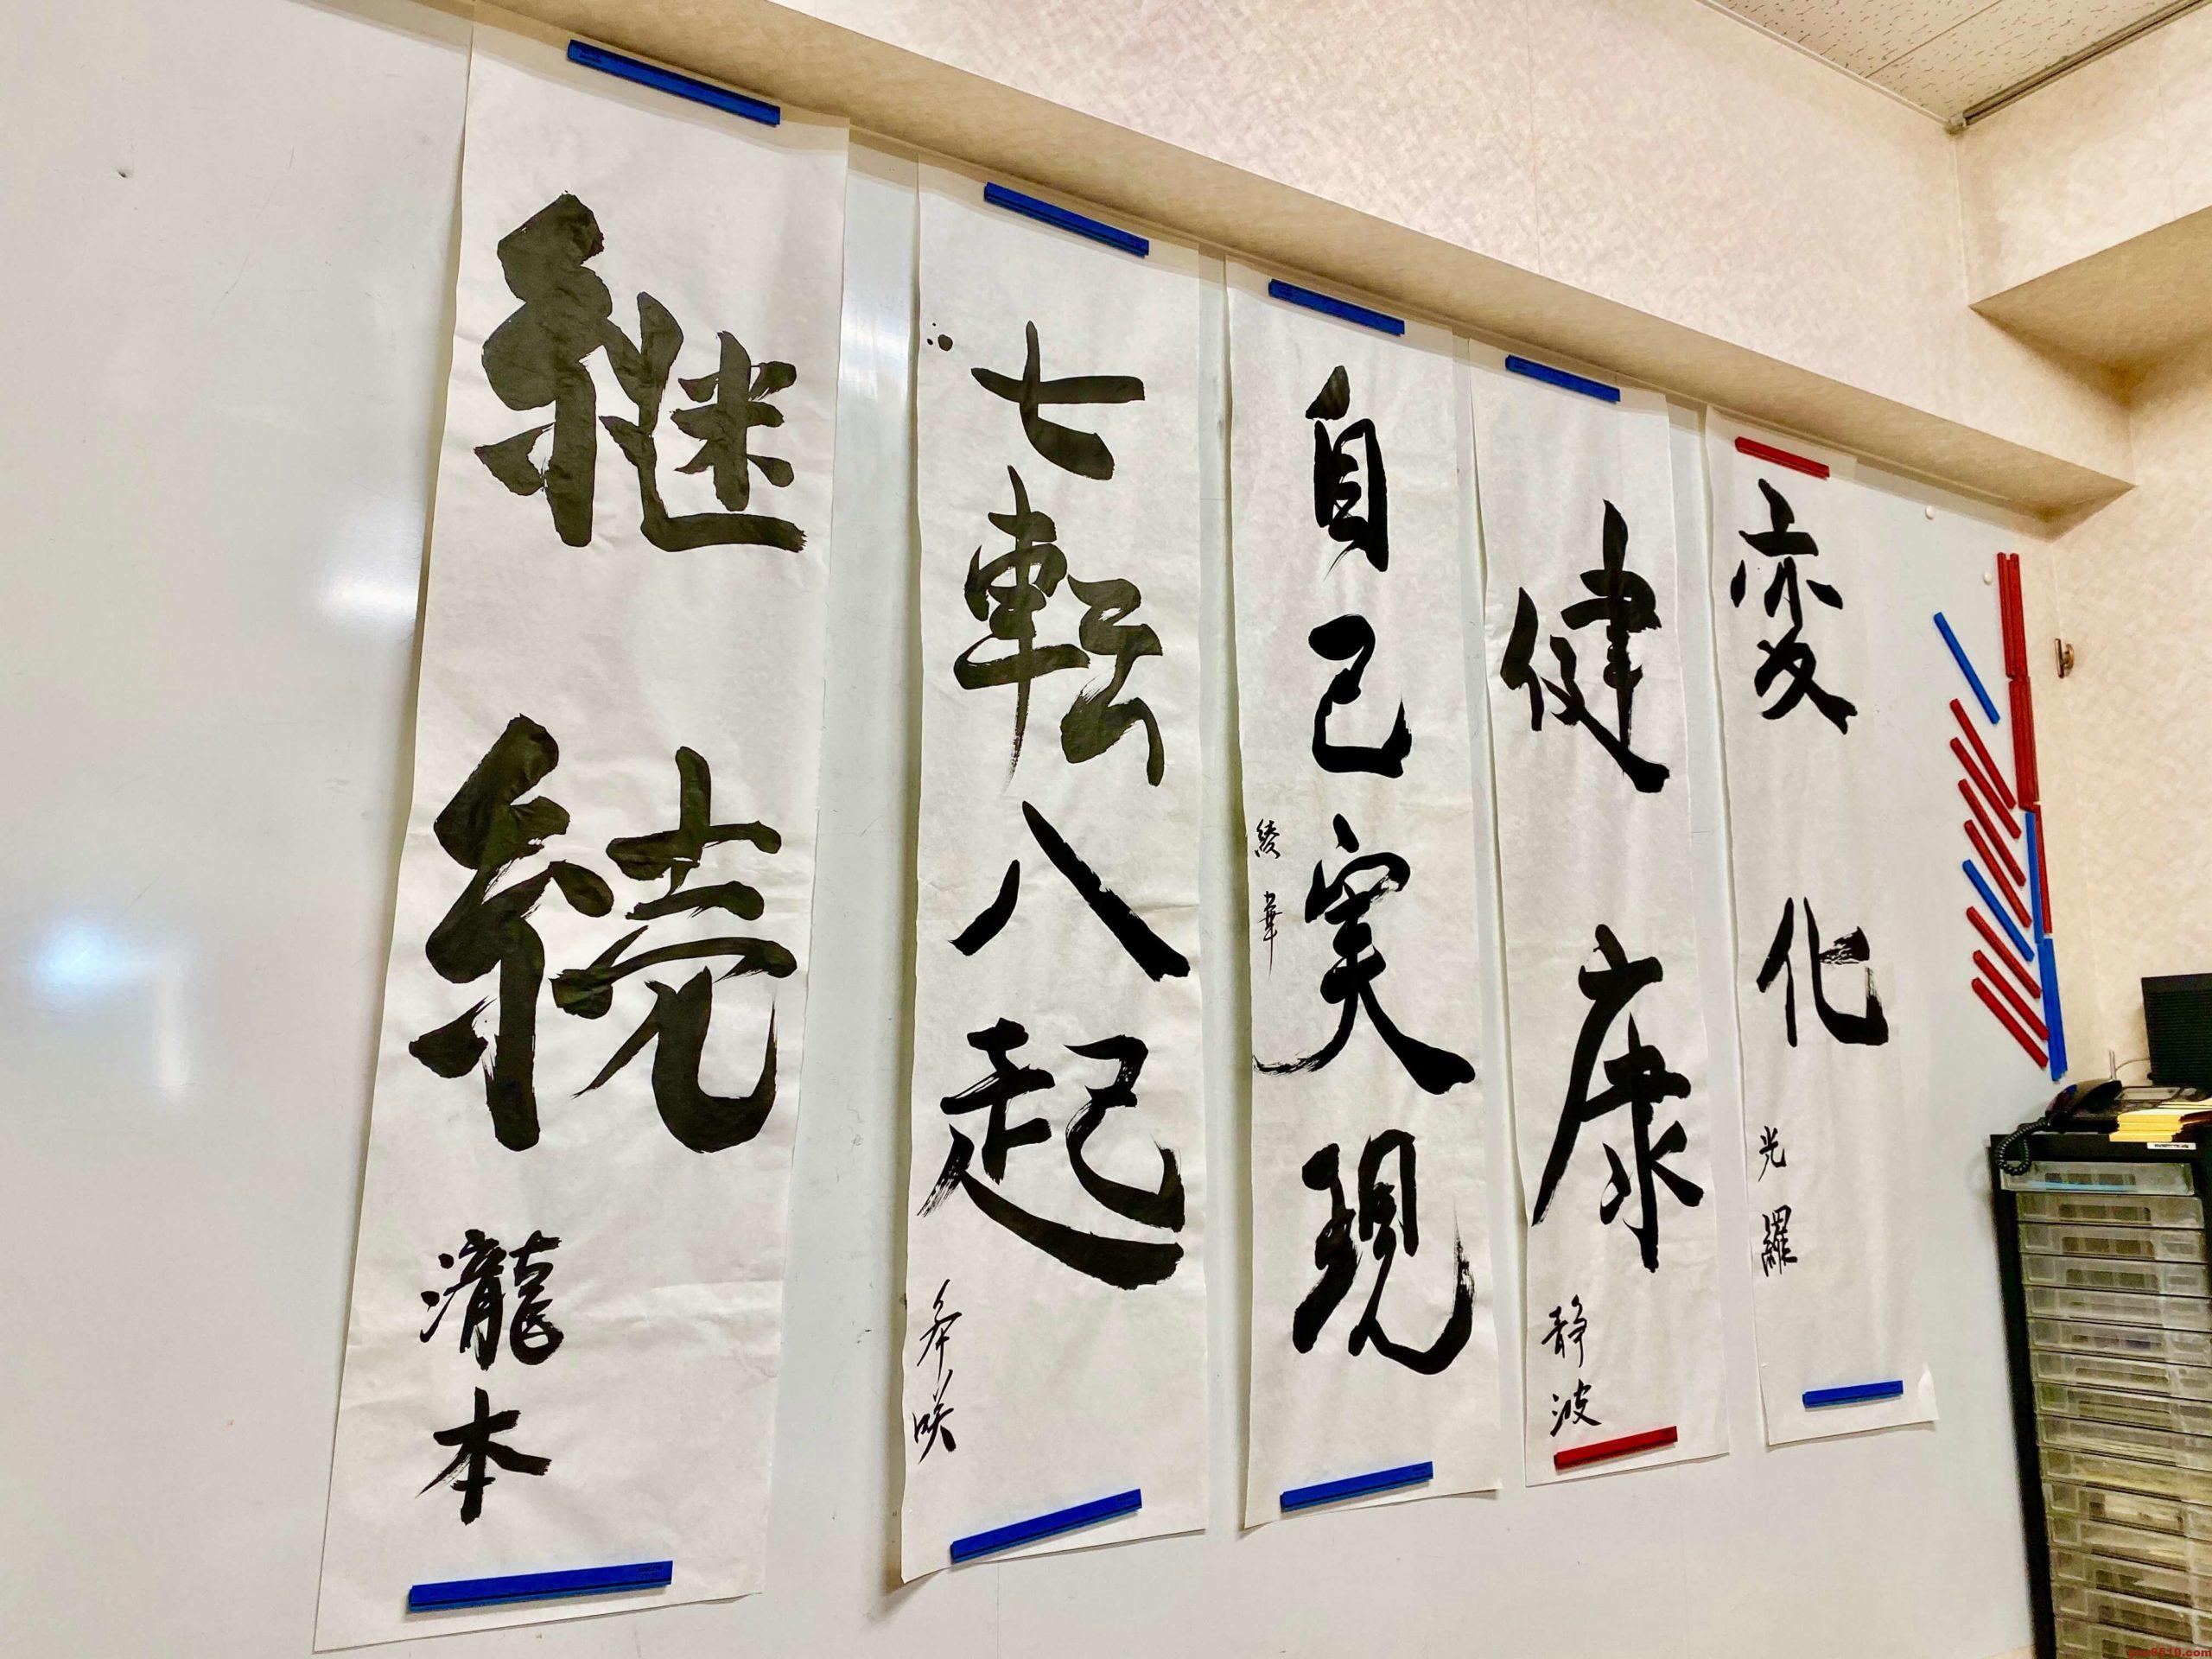 変化
光羅
健康
静波
自己実現
綾華
七転八起
希咲
継続
瀧本